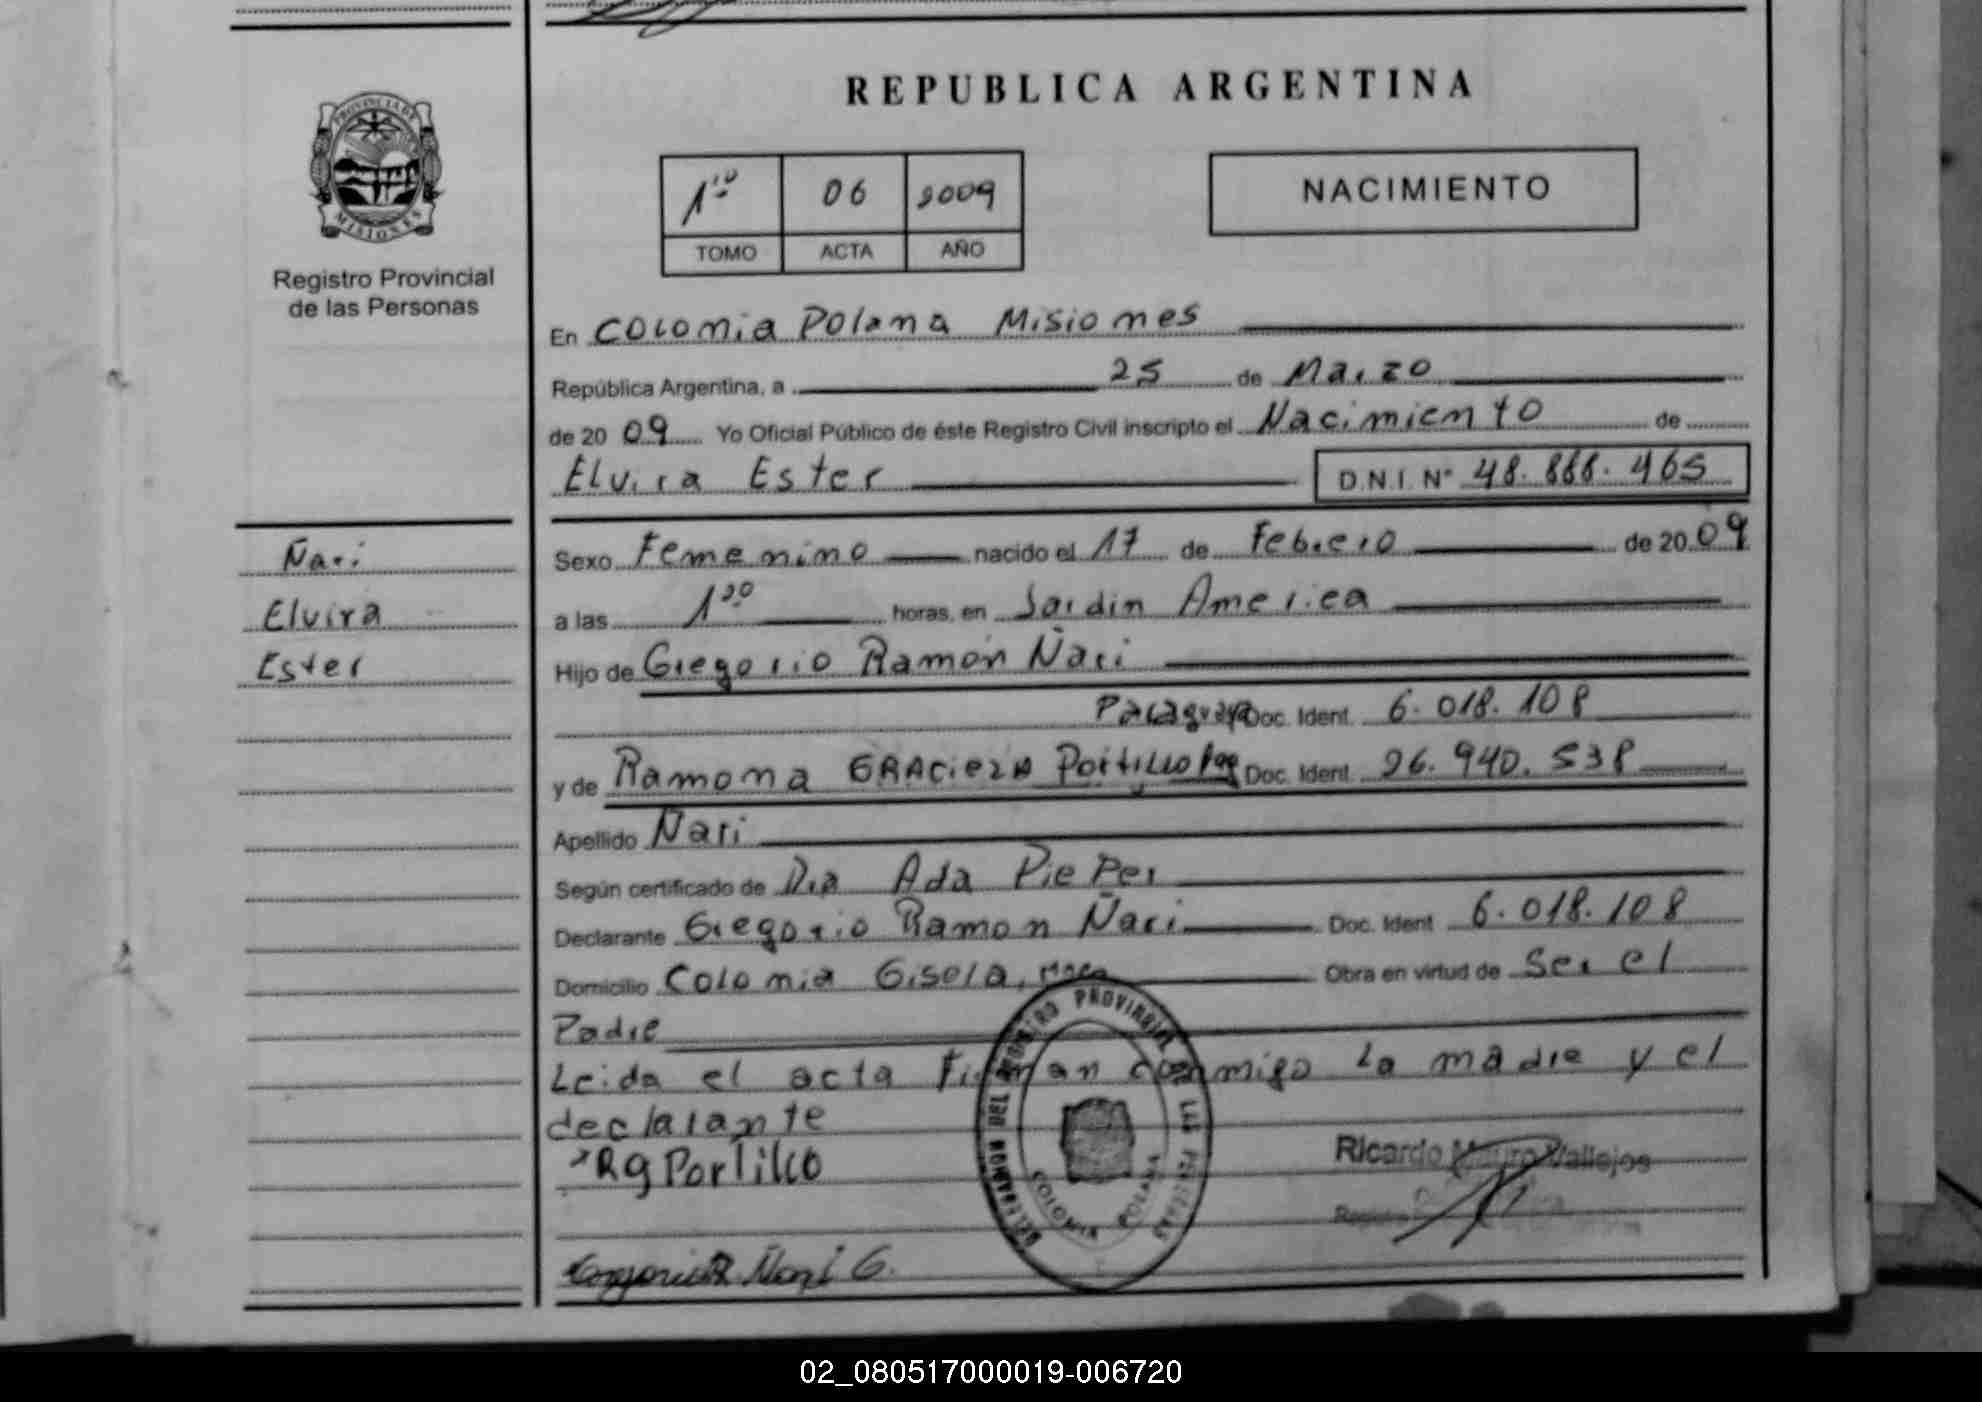 REPUBLICA ARGENTINA
PROVINCIA DE
MISIONES
Registro Provincial
de las Personas
06 2009
TOMO ACTA AÑO
NACIMIENTO
En Colonia Polana Misiones
República Argentina, a 25 de Marzo
de 20 09 Yo Oficial Público de éste Registro Civil inscripto el Nacimiento de
Elvira Ester D.N.I. Nº 48.866.465
Ñari
Elvira
Ester
Sexo Femenino nacido el 17 de Febrero de 20 09
a las 1³⁰ horas, en Jardin America
Hijo de Gregorio Ramón Ñari
Paraguayo Doc. Ident. 6.018.108
y de Ramona GRACiEla Portillo Doc. Ident. 26.940.538
Apellido Ñari
Según certificado de Dra Ada Pieper
Declarante Gregorio Ramon Ñari Doc. Ident 6.018.108
Domicilio Colonia Gisela, Obra en virtud de Ser el
Padre
Leida el acta Firman conmigo la madre y el
declarante
RG Portillo
Ricardo Mauro Vallejos
DELEGACION DEL REGISTRO PROVINCIAL DE LAS PERSONAS
COLONIA POLANA
Ñari G.
02_080517000019-006720